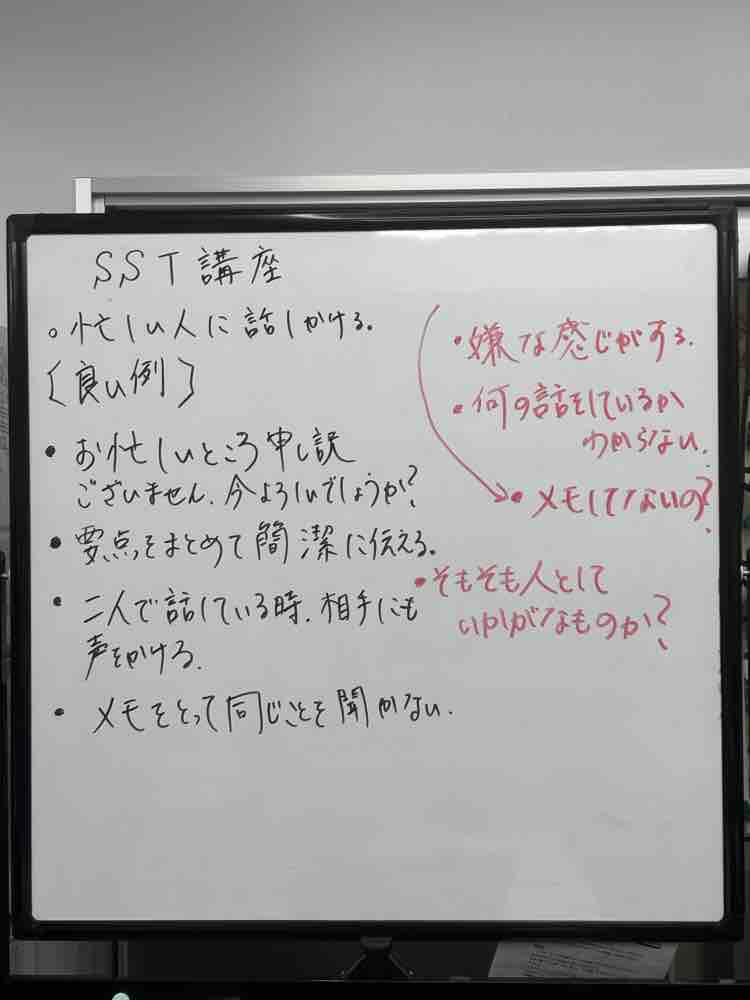 SST講座
○忙しい人に話しかける。
〔良い例〕
・お忙しいところ申し訳
ございません。今よろしいでしょうか?
・要点をまとめて簡潔に伝える。
・二人で話している時、相手にも
声をかける。
・メモをとって同じことを聞かない。
・嫌な感じがする。
・何の話をしているか
わからない。
・メモしてないの?
・そもそも人として
いかがなものか?